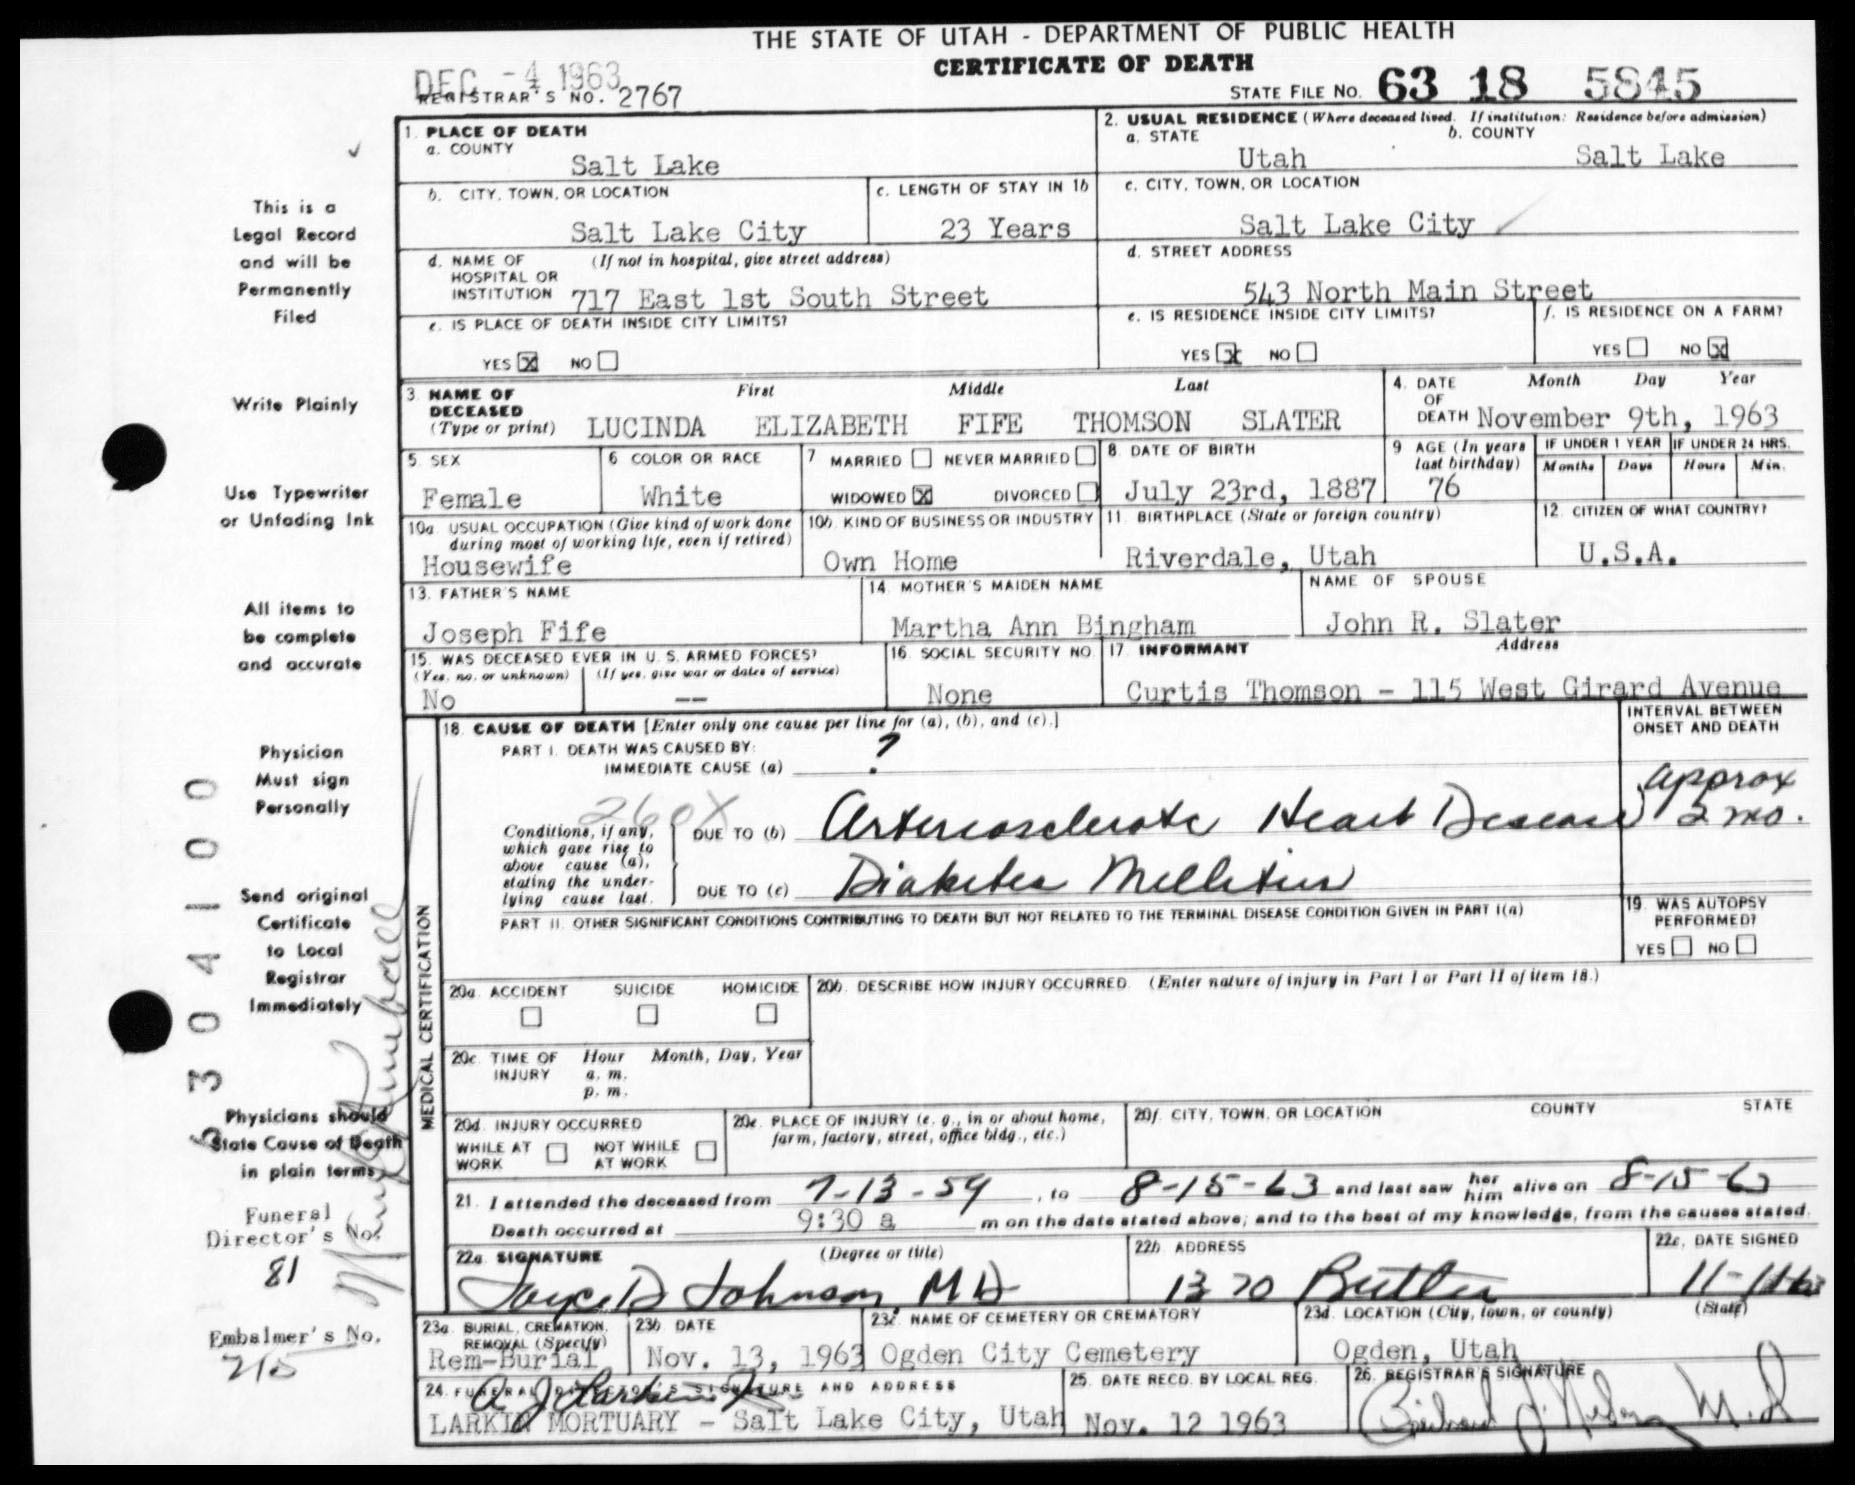 THE STATE OF UTAH - DEPARTMENT OF PUBLIC HEALTH
CERTIFICATE OF DEATH
DEC -4 1963
REGISTRAR'S NO. 2767
STATE FILE NO. 63 18 5845
1. PLACE OF DEATH
a. COUNTY
Salt Lake
2. USUAL RESIDENCE (Where deceased lived. If institution: Residence before admission)
a. STATE b. COUNTY
Utah Salt Lake
b. CITY, TOWN, OR LOCATION
Salt Lake City
c. LENGTH OF STAY IN 1b
23 Years
c. CITY, TOWN, OR LOCATION
Salt Lake City
d. NAME OF HOSPITAL OR INSTITUTION (If not in hospital, give street address)
717 East 1st South Street
d. STREET ADDRESS
543 North Main Street
e. IS PLACE OF DEATH INSIDE CITY LIMITS?
YES X NO
e. IS RESIDENCE INSIDE CITY LIMITS?
YES X NO
f. IS RESIDENCE ON A FARM?
YES NO X
3. NAME OF DECEASED (Type or print) First Middle Last
LUCINDA ELIZABETH FIFE THOMSON SLATER
4. DATE OF DEATH Month Day Year
November 9th, 1963
5. SEX
Female
6. COLOR OR RACE
White
7. MARRIED NEVER MARRIED
WIDOWED X DIVORCED
8. DATE OF BIRTH
July 23rd, 1887
9. AGE (In years last birthday)
76
IF UNDER 1 YEAR IF UNDER 24 HRS.
Months Days Hours Min.
10a. USUAL OCCUPATION (Give kind of work done during most of working life, even if retired)
Housewife
10b. KIND OF BUSINESS OR INDUSTRY
Own Home
11. BIRTHPLACE (State or foreign country)
Riverdale, Utah
12. CITIZEN OF WHAT COUNTRY?
U.S.A.
13. FATHER'S NAME
Joseph Fife
14. MOTHER'S MAIDEN NAME
Martha Ann Bingham
NAME OF SPOUSE
John R. Slater
15. WAS DECEASED EVER IN U. S. ARMED FORCES?
(Yes, no, or unknown) (If yes, give war or dates of service)
No --
16. SOCIAL SECURITY NO.
None
17. INFORMANT Address
Curtis Thomson - 115 West Girard Avenue
18. CAUSE OF DEATH [Enter only one cause per line for (a), (b), and (c).]
INTERVAL BETWEEN ONSET AND DEATH
PART I. DEATH WAS CAUSED BY:
IMMEDIATE CAUSE (a) ?
260X
Conditions, if any, which gave rise to above cause (a), stating the underlying cause last.
DUE TO (b) Arteriosclerotic Heart Disease approx 2 mo.
DUE TO (c) Diabetes Mellitus
PART II. OTHER SIGNIFICANT CONDITIONS CONTRIBUTING TO DEATH BUT NOT RELATED TO THE TERMINAL DISEASE CONDITION GIVEN IN PART I(a)
19. WAS AUTOPSY PERFORMED?
YES NO
MEDICAL CERTIFICATION
20a. ACCIDENT SUICIDE HOMICIDE
20b. DESCRIBE HOW INJURY OCCURRED. (Enter nature of injury in Part I or Part II of item 18.)
20c. TIME OF INJURY Hour Month, Day, Year
a. m.
p. m.
20d. INJURY OCCURRED
WHILE AT WORK NOT WHILE AT WORK
20e. PLACE OF INJURY (e. g., in or about home, farm, factory, street, office bldg., etc.)
20f. CITY, TOWN, OR LOCATION COUNTY STATE
21. I attended the deceased from 7-13-59, to 8-15-63 and last saw her him alive on 8-15-63
Death occurred at 9:30 a m on the date stated above; and to the best of my knowledge, from the causes stated.
22a. SIGNATURE (Degree or title)
Joyce D Johnson, MD
22b. ADDRESS
1370 Butler
22c. DATE SIGNED
23a. BURIAL, CREMATION, REMOVAL (Specify)
Rem-Burial
23b. DATE
Nov. 13, 1963
23c. NAME OF CEMETERY OR CREMATORY
Ogden City Cemetery
23d. LOCATION (City, town, or county) (State)
Ogden, Utah
24. FUNERAL DIRECTOR'S SIGNATURE AND ADDRESS
A J Larkin
LARKIN MORTUARY - Salt Lake City, Utah
25. DATE RECD. BY LOCAL REG.
Nov. 12 1963
26. REGISTRAR'S SIGNATURE
This is a
Legal Record
and will be
Permanently
Filed
Write Plainly
Use Typewriter
or Unfading Ink
All items to
be complete
and accurate
Physician
Must sign
Personally
Send original
Certificate
to Local
Registrar
Immediately
Physicians should
State Cause of Death
in plain terms
Funeral
Director's No.
81
Embalmer's No.
215
6304100